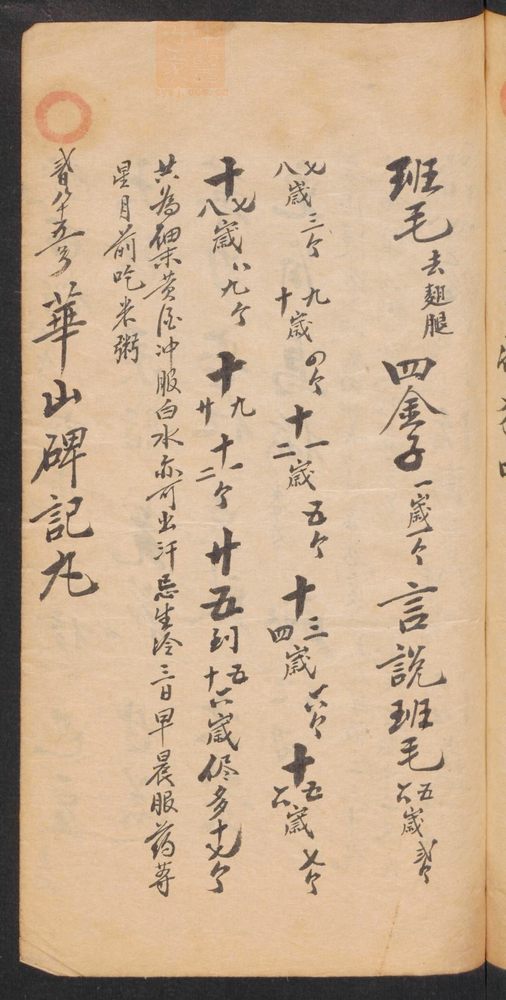 班毛去翅腿 四金子一歲一个 言説班毛五六歲貳个
七八歲三个 九十歲四个 十一二歲五个 十三四歲六个 十五六歲七个
十七八歲八九个 十九廿十一二个 廿五到五十六歲侭多十七个
共為細末黄酒冲服白水亦可出汗忌生冷三日早晨服药等
星月前吃米粥
貳拾五号 華山碑記丸